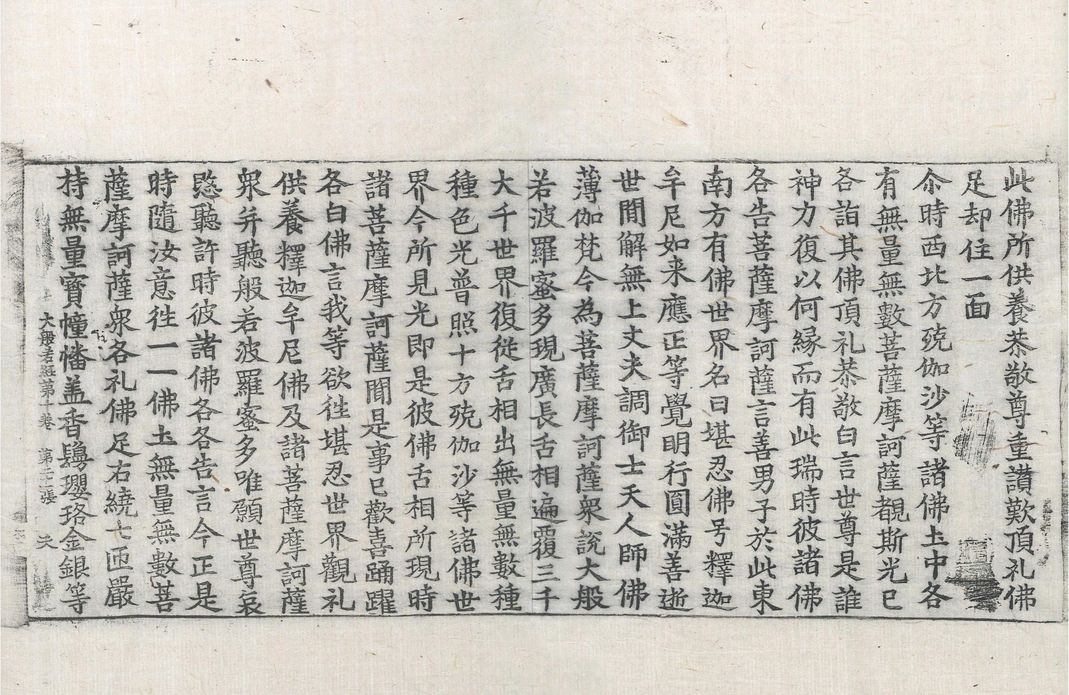 此佛所供養恭敬尊重讃歎頂礼佛
足却住一面
尒時西北方殑伽沙等諸佛土中各
有無量無數菩薩摩訶薩覩斯光已
各詣其佛頂礼恭敬白言世尊是誰
神力復以何縁而有此瑞時彼諸佛
各告菩薩摩訶薩言善男子於此東
南方有佛世界名曰堪忍佛号釋迦
牟尼如来應正等覺明行圓滿善逝
世間解無上丈夫調御士天人師佛
薄伽梵今為菩薩摩訶薩衆說大般
若波羅蜜多現廣長舌相遍覆三千
大千世界復從舌相出無量無數種
種色光普照十方殑伽沙等諸佛世
界今所見光即是彼佛舌相所現時
諸菩薩摩訶薩聞是事已歡喜踊躍
各白佛言我等欲徃堪忍世界觀礼
供養釋迦牟尼佛及諸菩薩摩訶薩
衆并聽般若波羅蜜多唯願世尊哀
愍聽許時彼諸佛各各告言今正是
時隨汝意徃一一佛土無量無數菩
薩摩訶薩衆各礼佛足右繞七匝嚴
持無量寶幢幡盖香鬘瓔珞金銀等
大般若經第十卷 第二十張 天